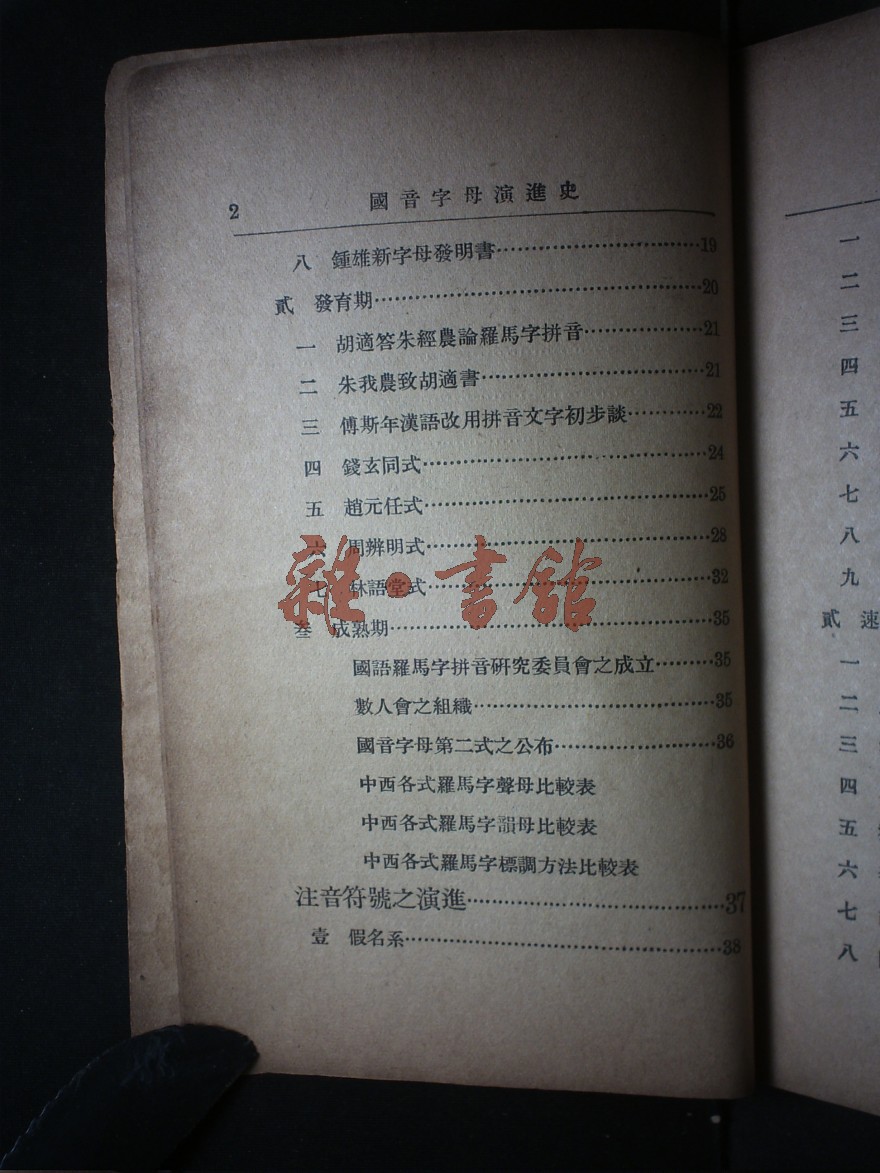 2 國音字母演進史
八 鍾雄新字母發明書 19
貳 發育期 20
一 胡適答朱經農論羅馬字拼音 21
二 朱我農致胡適書 21
三 傅斯年漢語改用拼音文字初步談 22
四 錢玄同式 24
五 趙元任式 25
六 周辨明式 28
七 林語堂式 32
叁 成熟期 35
國語羅馬字拼音研究委員會之成立 35
數人會之組織 35
國音字母第二式之公布 36
中西各式羅馬字聲母比較表
中西各式羅馬字韻母比較表
中西各式羅馬字標調方法比較表
注音符號之演進 37
壹 假名系 38
雜·書館
一
二
三
四
五
六
七
八
九
貳 速
一
二
三
四
五
六
七
八